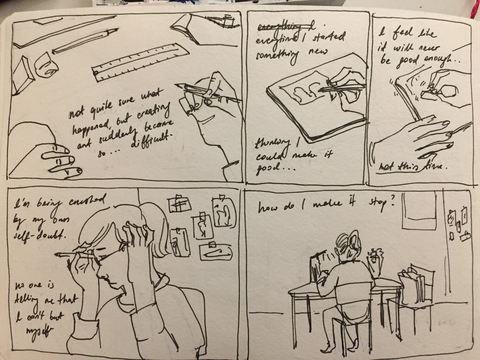 not quite sure what
happened, but creating
art suddenly become
so... difficult.
everything I
everytime I started
something new
thinking I
could make it
good...
I feel like
it will never
be good enough...
not this time.
I'm being crushed
by my own
self-doubt.
no one is
telling me that
I can't but
myself
how do I make it stop?